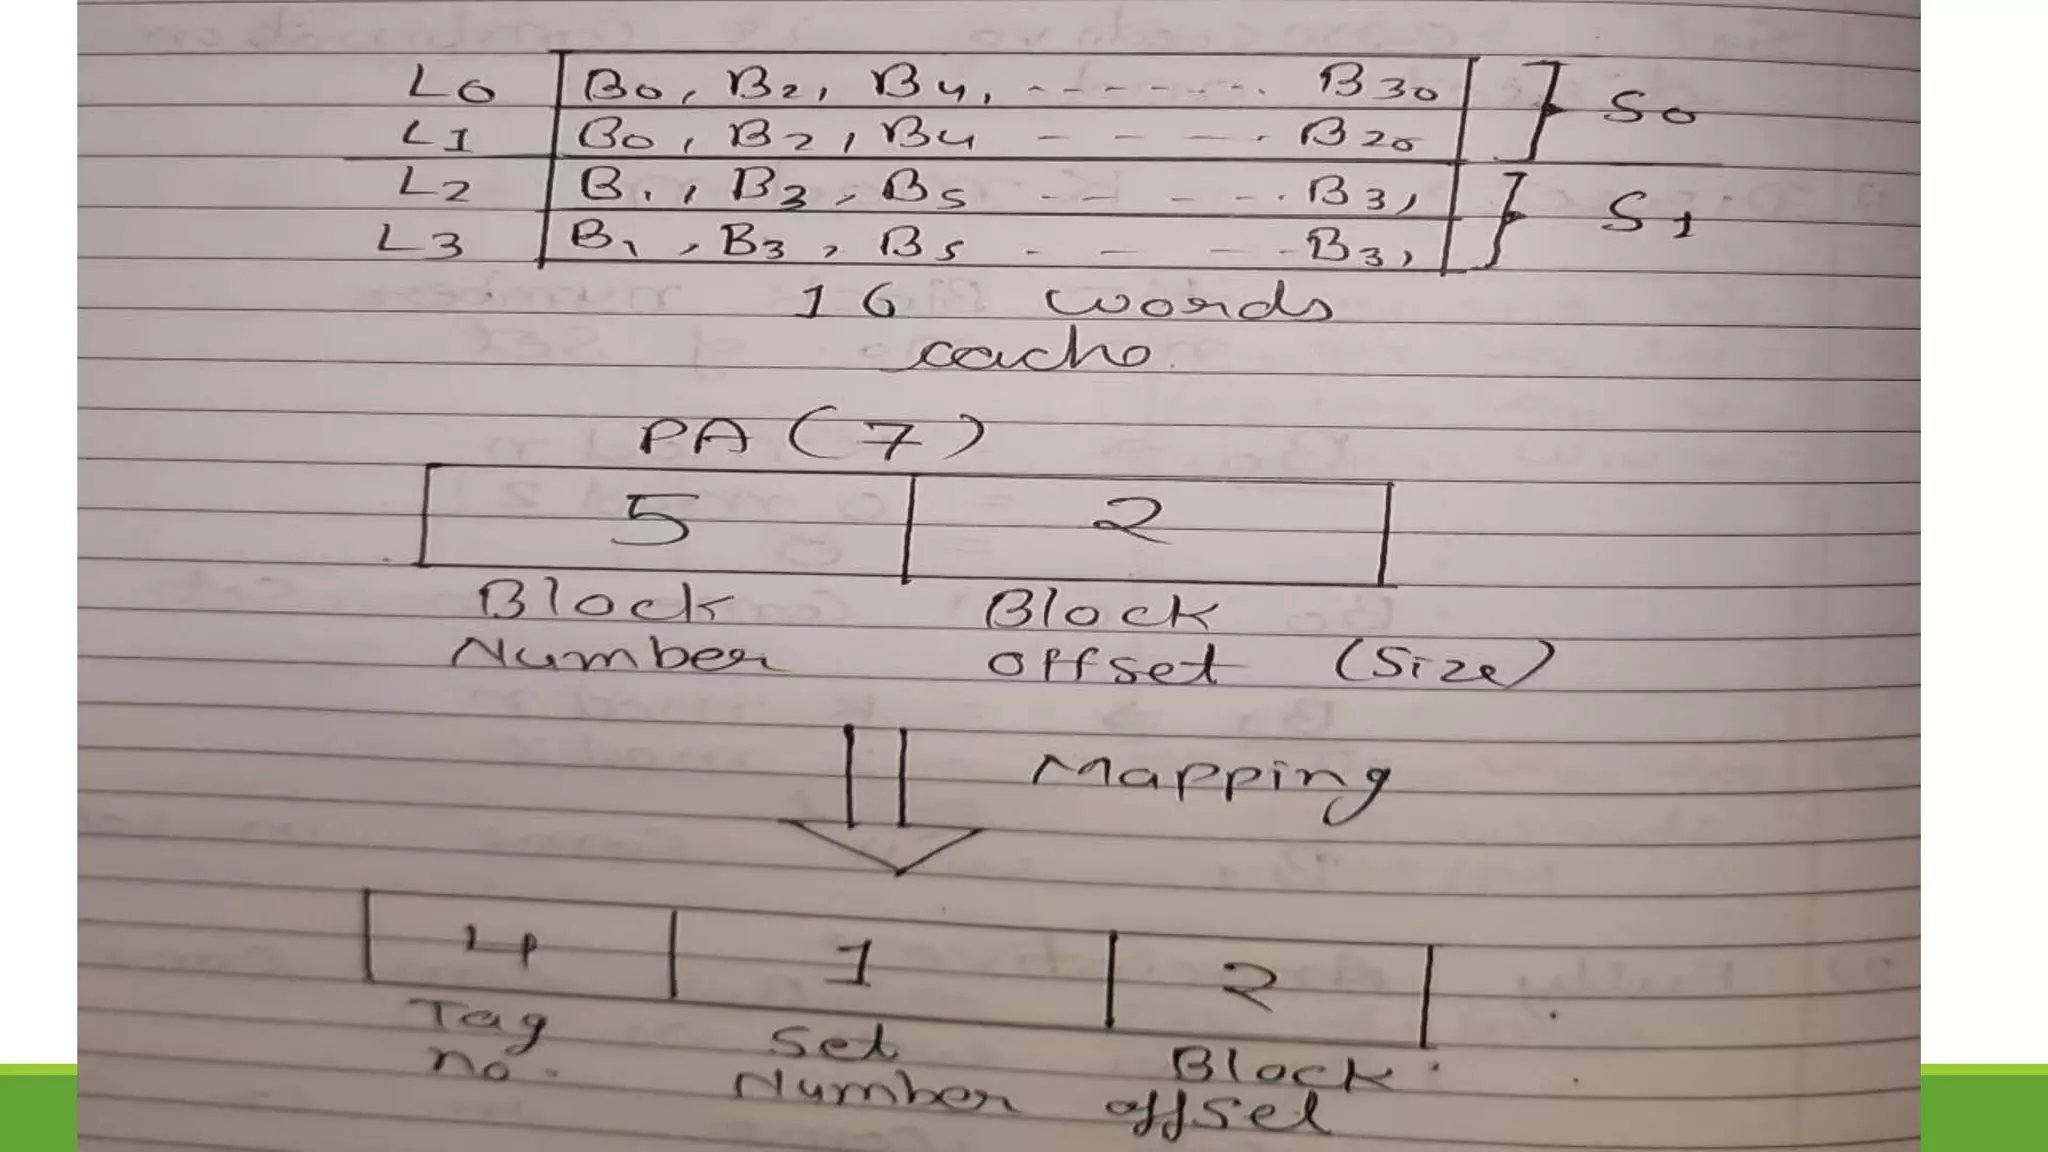 L0 B0, B2, B4, ------- B30 } S0
L1 B0, B2, B4 - - - - B20
L2 B1, B3, B5 - - - - B31 } S1
L3 B1, B3, B5 - - - - B31
16 words
cache
PA (7)
5 2
Block Block
Number offset (Size)
Mapping
4 1 2
Tag Set Block
no. Number offset